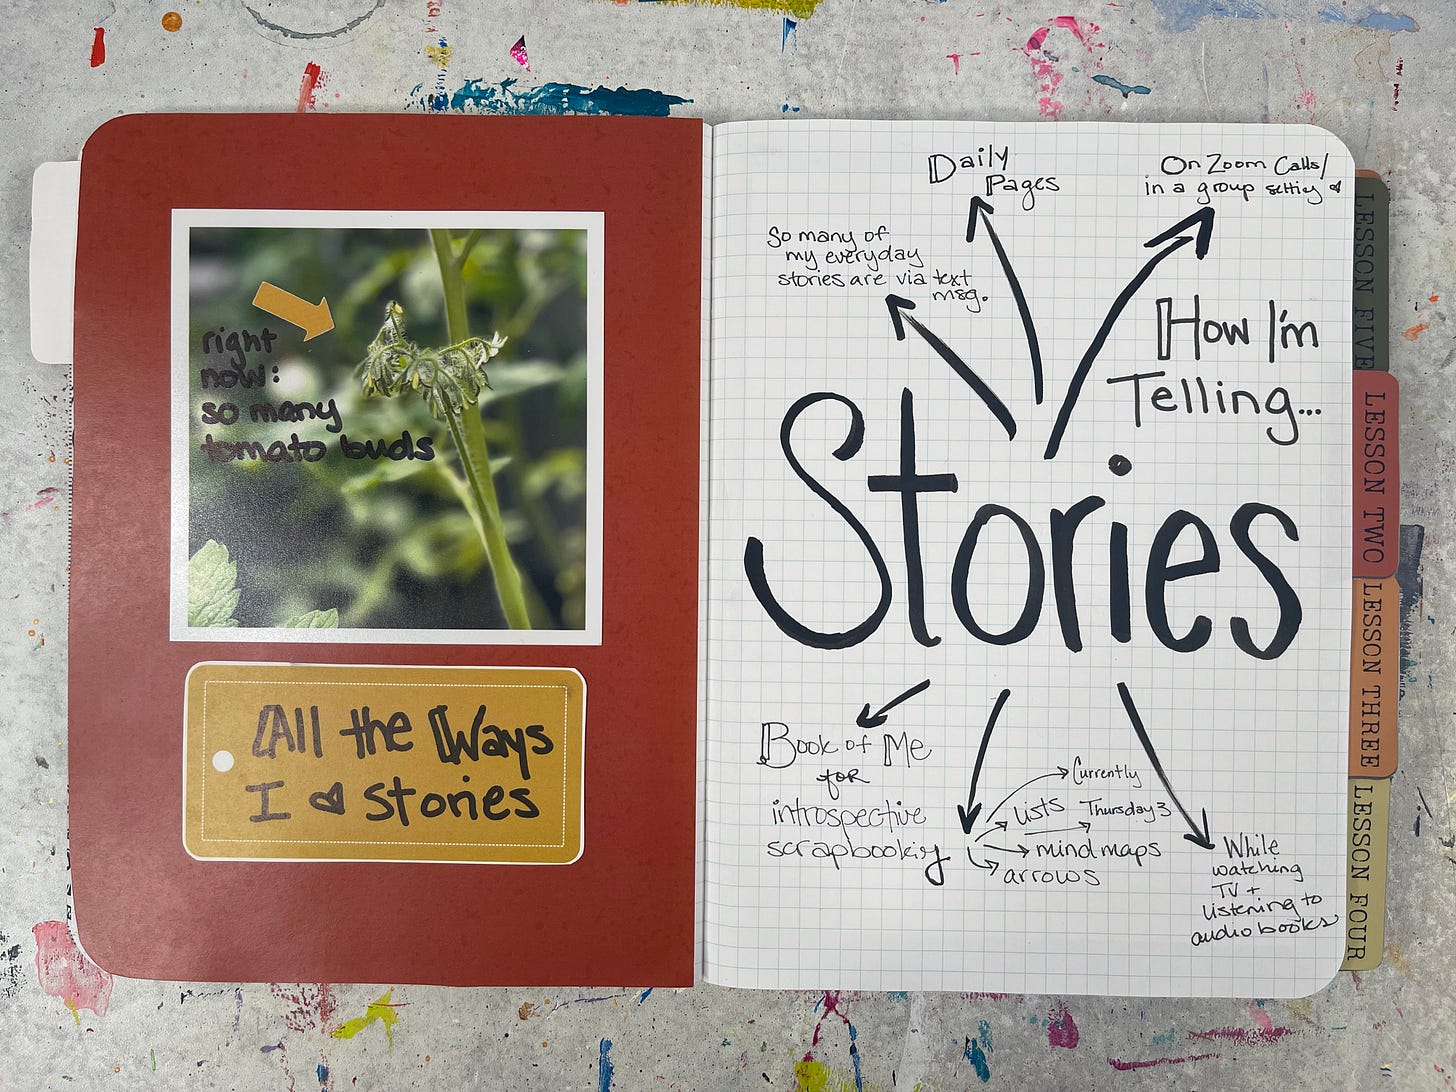 right
now:
so many
tomato buds
All the Ways
I ♥ stories
Daily
Pages
On Zoom Calls/
in a group setting ♥
So many of
my everyday
stories are via text
msg.
How I'm
Telling...
Stories
Book of Me
for
introspective
scrapbooking
Currently
Lists
Thursday 3
mind maps
arrows
While
watching
TV +
Listening to
audio books
LESSON FIVE
LESSON TWO
LESSON THREE
LESSON FOUR